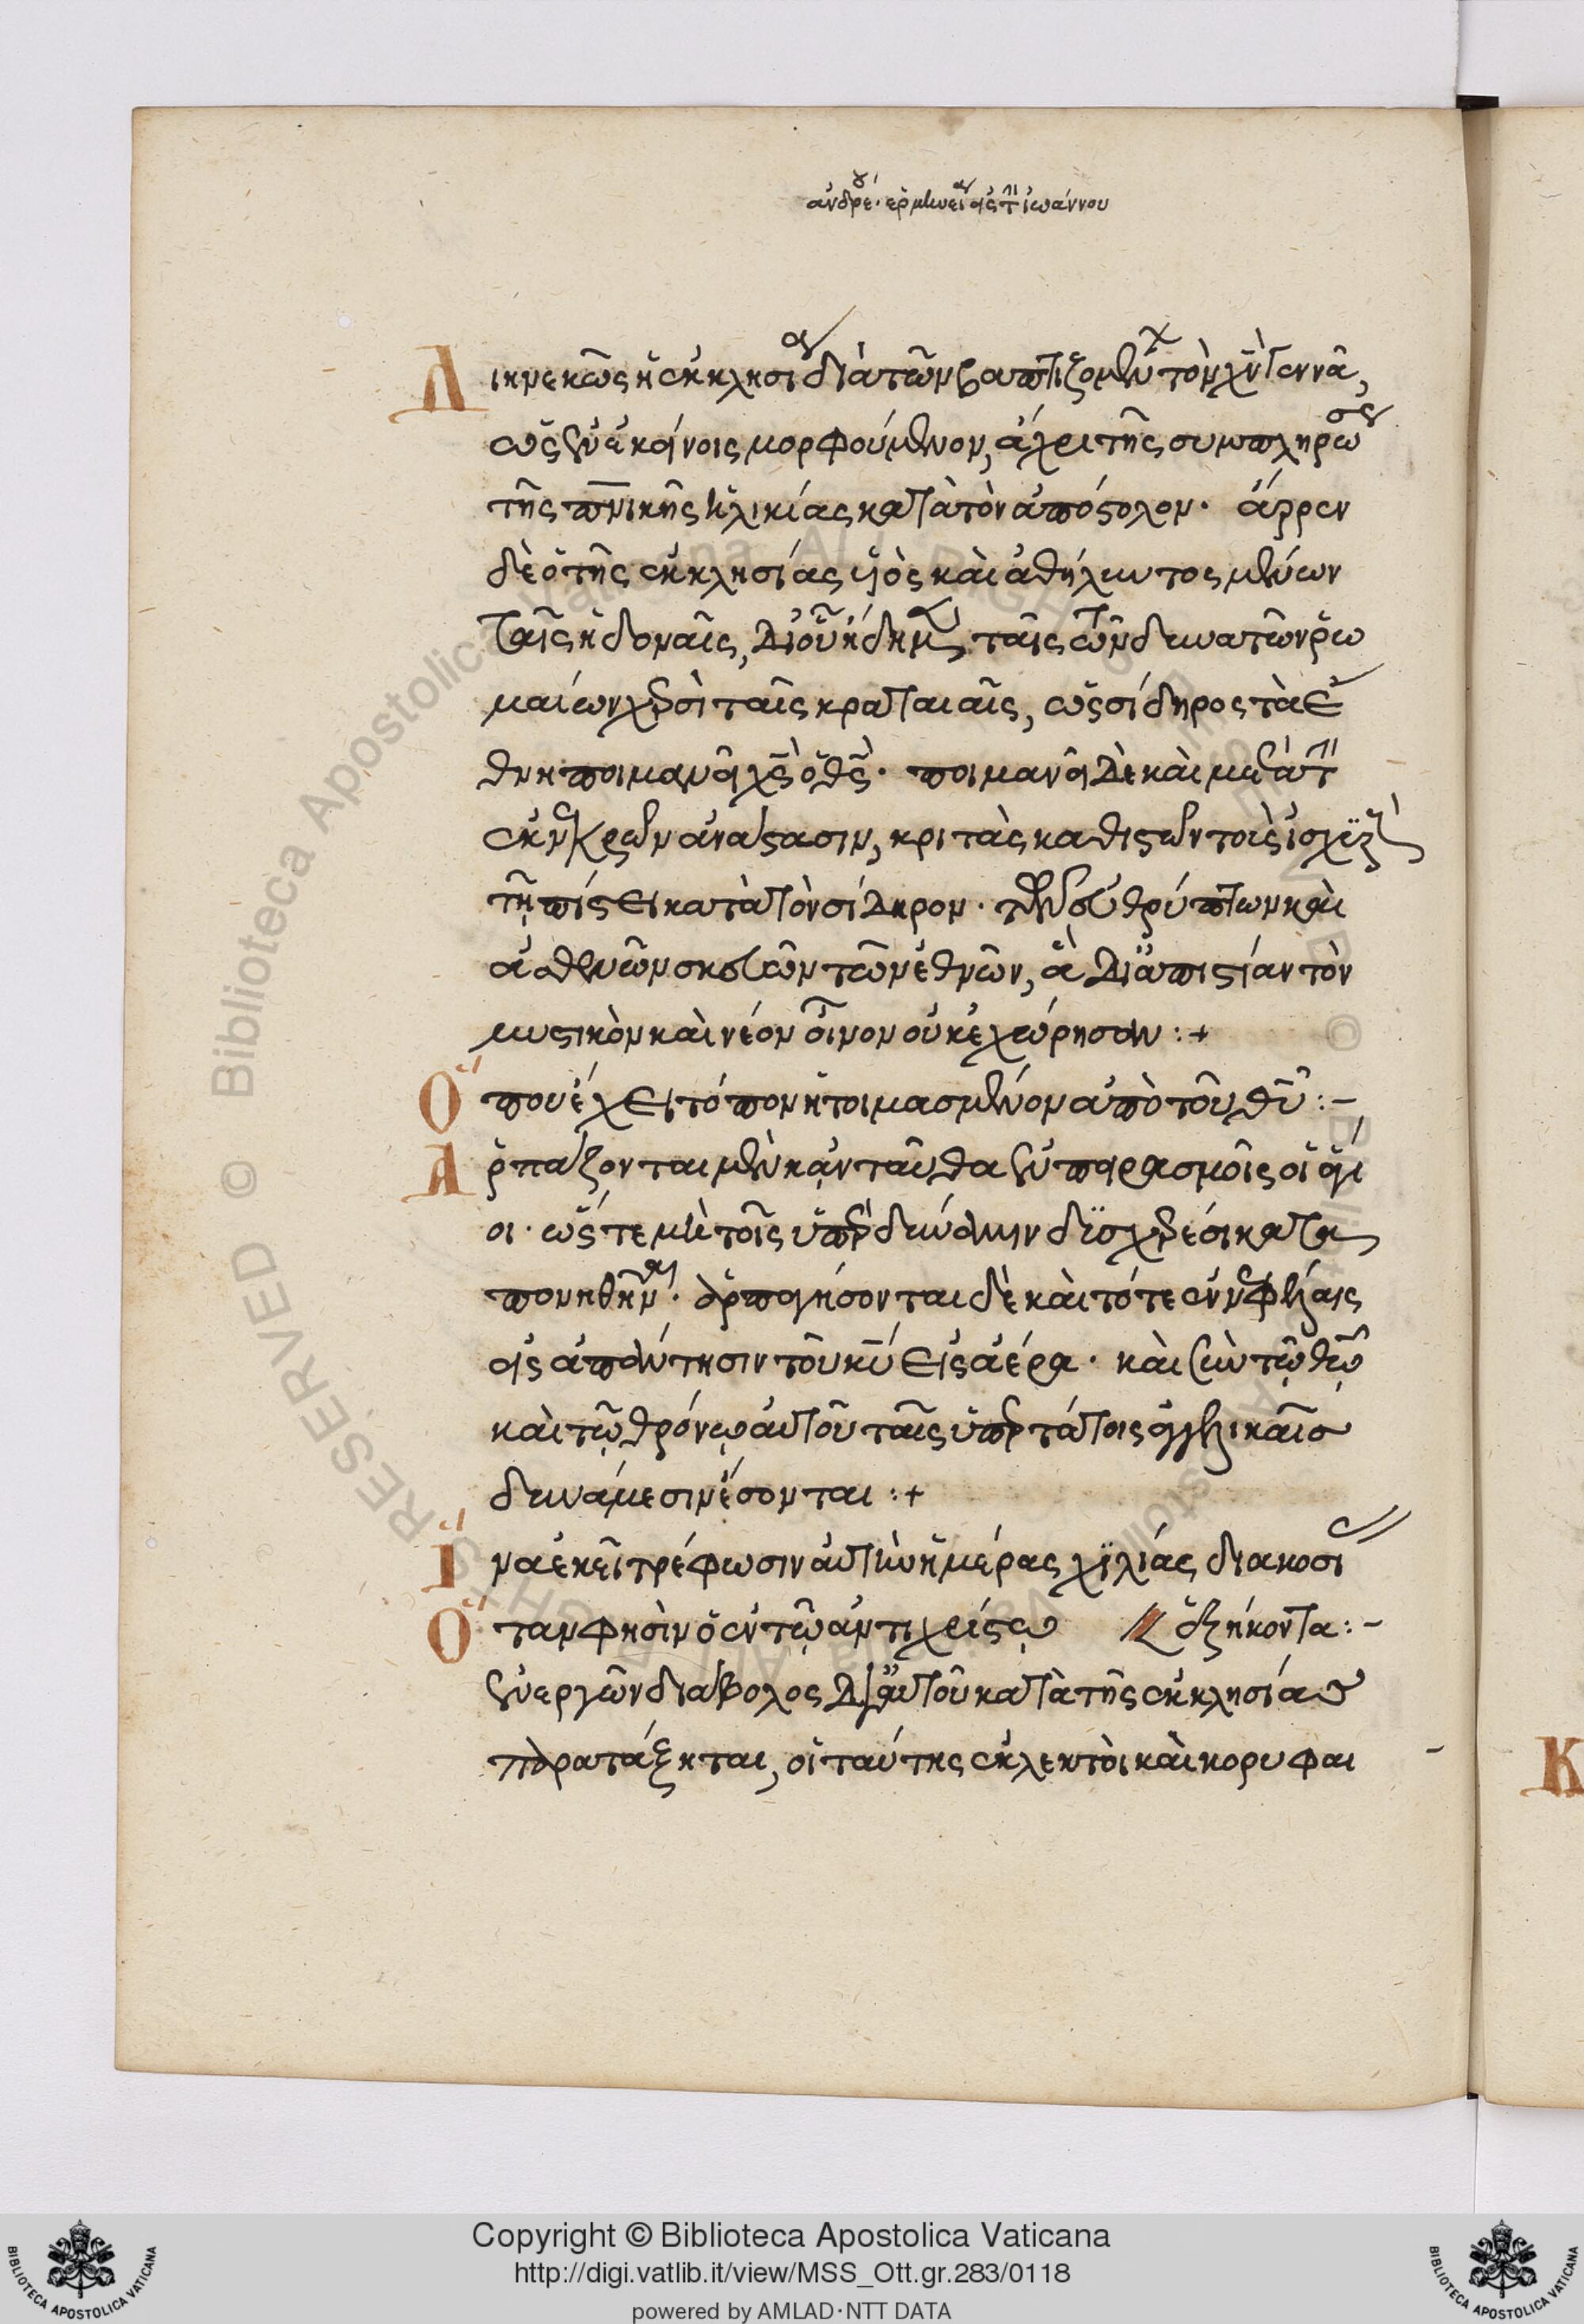 ἀνδρέου ἑρμηνεία εἰς τὴν ἰωάννου
Διηνεκῶς ἡ ἐκκλησία διὰ τῶν βαπτιζομένων τὸν χν γεννᾶ,
ὡς ἐν ἐκείνοις μορφούμενον, ἄχρι τῆς συμπληρώσεως
τῆς πνικῆς ἡλικίας κατὰ τὸν ἀπόστολον. ἄρρεν
δὲ ὁ τῆς ἐκκλησίας υἱὸς καὶ ἀθήλυντος μένων
ταῖς ἡδοναῖς, δι οὗ ἤδη μὲν, ταῖς τῶν δυνατῶν ῥω
μαίων χερσὶ ταῖς κραταιαῖς, ὡς σίδηρος τὰ ἔ
θνη ποιμανεῖ χς ὁ θς. ποιμανεῖ δὲ καὶ μετὰ τὴν
ἐκ νεκρῶν ἀνάστασιν, κριτὰς καθιστῶν τοὺς ἰσχυροὺς
τῇ πίστει κατὰ τὸν σίδηρον. τῶν θρύπτων καὶ
ἀσθενῶν σκευῶν τῶν ἐθνῶν, ἃ δι ἀπιστίαν τὸν
μυστικὸν καὶ νέον οἶνον οὐκ ἐχώρησαν :+
Ὅπου ἔχει τόπον ἡτοιμασμένον ἀπὸ τοῦ θυ :-
Ἁρπάζονται μὲν κἀνταῦθα ἐν πειρασμοῖς οἱ ἅγι
οι. ὥστε μὴ τοῖς ὑπὲρ δύναμιν δυσχερέσι κατα
πονηθῆναι. ἁρπαγήσονται δὲ καὶ τότε ἐν νεφέλαις
εἰς ἀπάντησιν τοῦ κυ εἰς ἀέρα. καὶ σὺν τῷ θῷ
καὶ τῷ θρόνῳ αὐτοῦ ταῖς ὑπερτάτοις ἀγγελικαῖς
δυνάμεσιν ἔσονται :+
Ἵνα ἐκεῖ τρέφωσιν αὐτὴν ἡμέρας χιλίας διακοσίας
Ὅταν φησὶν ὁ ἐν τῷ ἀντιχρίστῳ ἑξήκοντα :-
ἐνεργῶν διάβολος δι αὐτοῦ κατὰ τῆς ἐκκλησίας
παρατάξηται, οἱ ταύτης ἐκλεκτοὶ καὶ κορυφαι
K
BIBLIOTECA APOSTOLICA VATICANA
Copyright © Biblioteca Apostolica Vaticana
http://digi.vatlib.it/view/MSS_Ott.gr.283/0118
powered by AMLAD·NTT DATA
BIBLIOTECA APOSTOLICA VATICANA